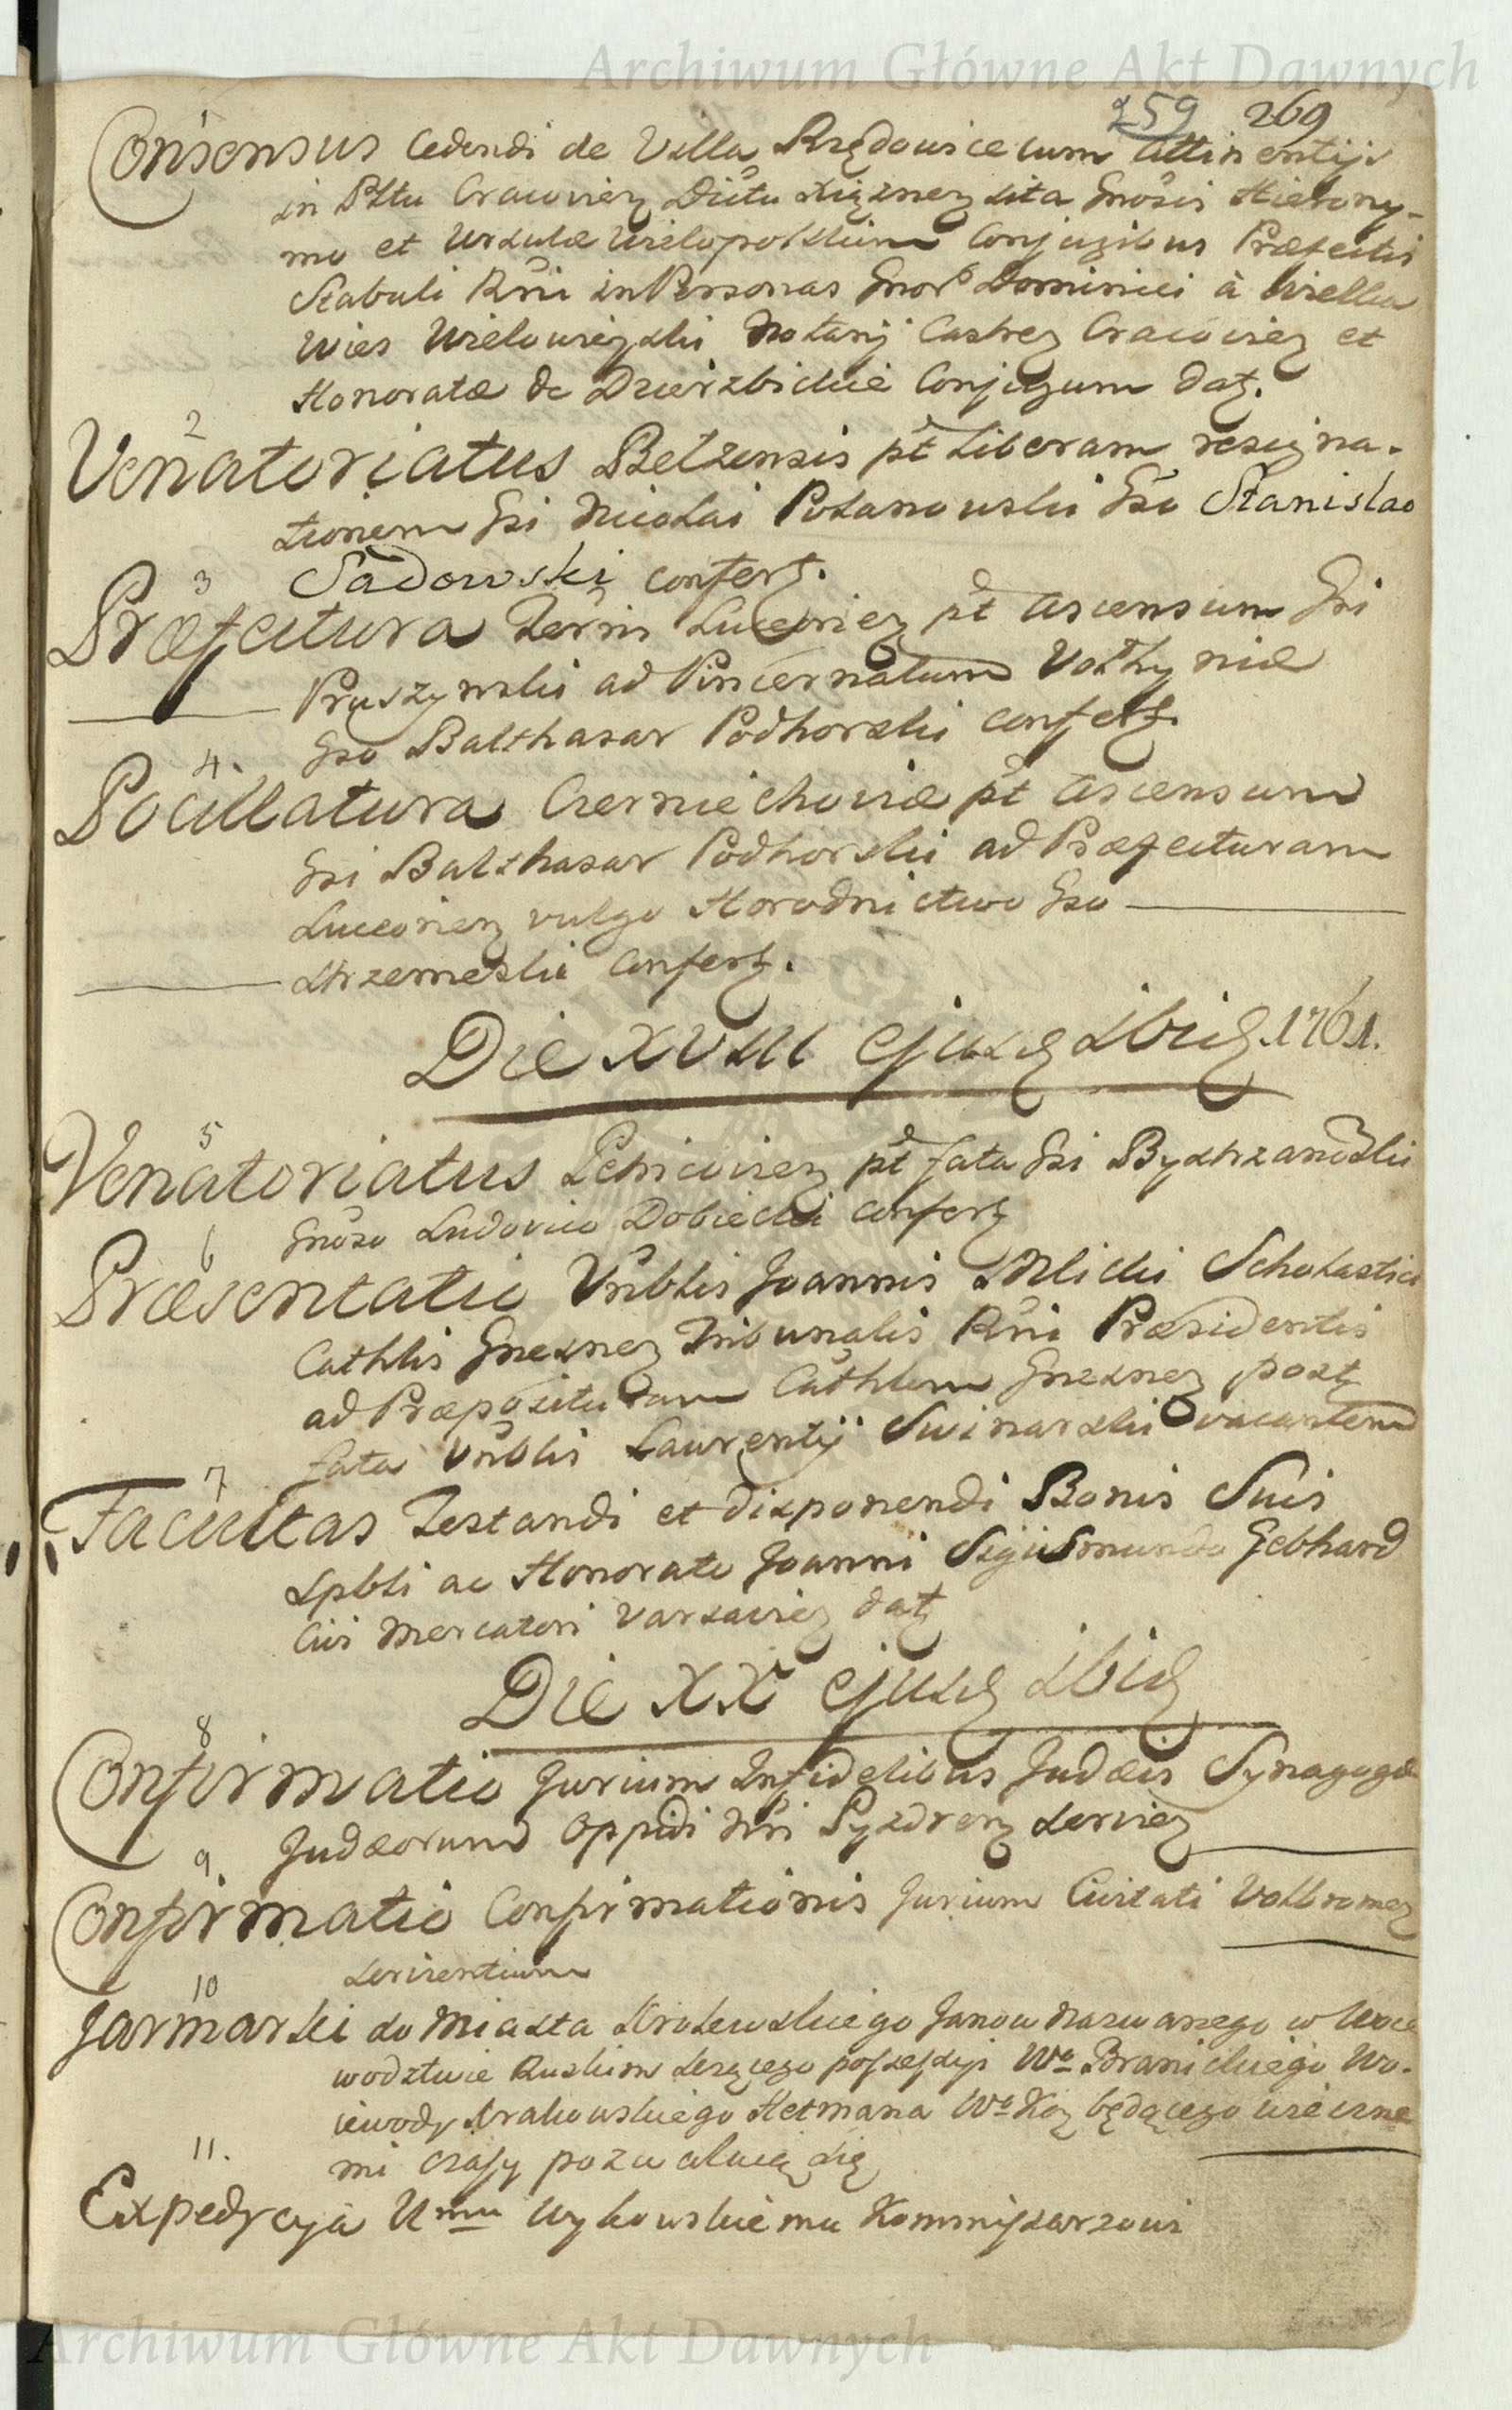 Archiwum Główne Akt Dawnych
259 269
1
Consensus Cedendi de Villa Rzędowice cum Attinentijs
in Pttu Cracovien Dictu Xiąznen sita Gnosis Hierony-
mo et Ursulæ Wielopolskim Conjugibus Præfectis
Stabuli Rni in Personas Gnor Dominici à Wielka
Wies Wielowieyski Notarij Castren Cracovien et
Honoratæ de Dzierzbickie Conjugum dat.
2
Venatoriatus Belzensis pt Liberam resigna-
tionem Gsi Nicolai Polanowski Gso Stanislao
Sadowski confert.
3
Præfectura Terris Luceorien pt ascensum Gsi
Pruszynski ad Pincernatum Volhyniæ
Gso Balthasar Podhorski confert.
4.
Pocillatura Czerniechoviæ pt ascensum
Gsi Balthasar Podhorski ad Præfecturam
Luceorien vulgo Horodnictwo Gso
Strzemeski Confert.
Die XVIII ejusd ibid. 1761.
5
Venatoriatus Lenicien pt fata Gsi Bystrzanowski
Gnoso Ludovico Dobiecki confert
6
Præsentatio Vnblis Joannis Mlicki Scholastici
Cathlis Gnesnen Tribunalis Rni Præsidentis
ad Præposituram Cathlem Gnesnen post
fata Vnblis Laurentij Swinarski vacantem
7
Facultas Testandi et disponendi Bonis Suis
Spbli ac Honorato Joanni Sigismundo Gebhard
Civi Mercatori Varsavien dat
Die XX ejusd ibid
8
Confirmatio Jurium Infidelibus Judæis Synagogæ
Judæorum Oppidi Nri Pyzdren servien
9.
Confirmatio Confirmationis Jurium Civitati Volbromen
servientium
10
Jarmarki do Miasta Krolewskiego Janow nazwanego w Woie
wodztwie Ruskim lezącego possessyi We Branickiego Wo-
iewody Krakowskiego Hetmana We Kor będącego wieczne
mi czasy pozwalaią się
11.
Expedycyja Umu Wykowskiemu Kommissarzowi
Archiwum Główne Akt Dawnych